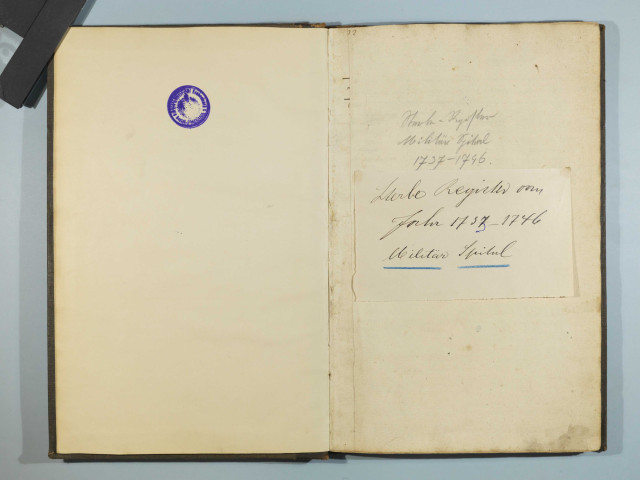 Sterb-Register
Militär Spital
1737-1746.
Sterbe Register vom
Jahr 1737-1746
Militär Spital